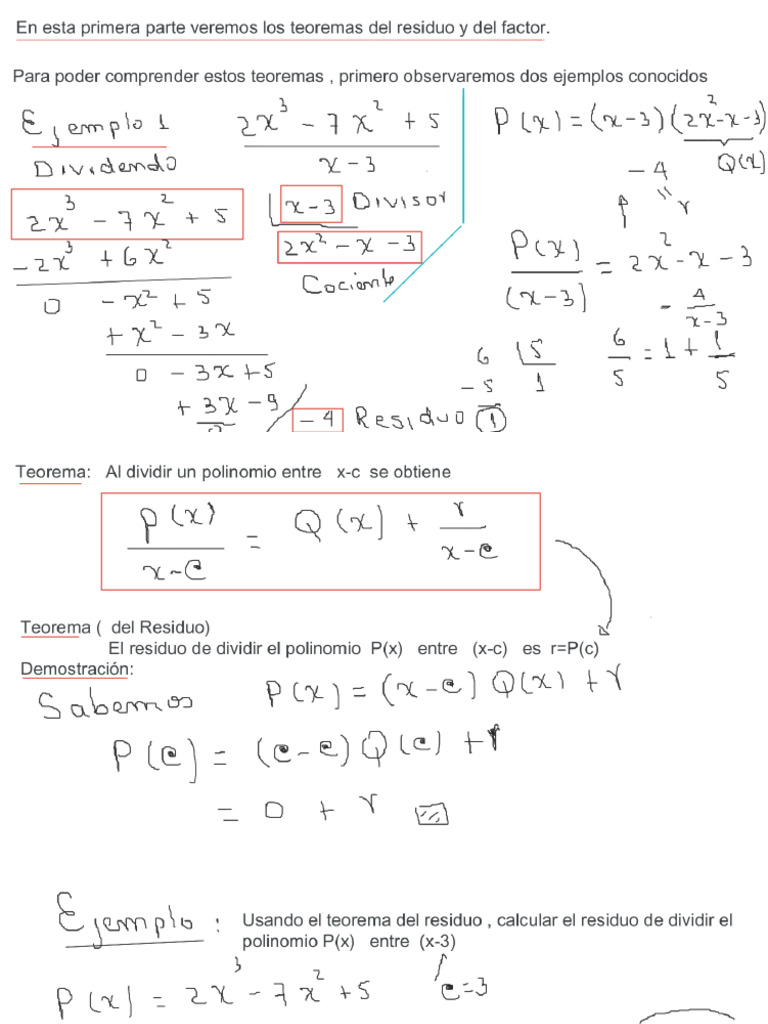 En esta primera parte veremos los teoremas del residuo y del factor.
Para poder comprender estos teoremas , primero observaremos dos ejemplos conocidos
Ejemplo 1
Dividendo
2x³ - 7x² + 5
-2x³ + 6x²
0 - x² + 5
+ x² - 3x
0 - 3x + 5
+ 3x - 9
- 4 Residuo
2x³ - 7x² + 5
x - 3
x-3 Divisor
2x² - x - 3
Cociente
P(x) = (x-3)(2x²-x-3)
Q(x)
- 4
r
P(x)/(x-3) = 2x²-x-3
- 4/(x-3)
6 5
- 5 1
1
6/5 = 1 + 1/5
Teorema: Al dividir un polinomio entre x-c se obtiene
P(x)/(x-c) = Q(x) + r/(x-c)
Teorema ( del Residuo)
El residuo de dividir el polinomio P(x) entre (x-c) es r=P(c)
Demostración:
Sabemos P(x) = (x-c) Q(x) + r
P(c) = (c-c) Q(c) + r
= 0 + r
Ejemplo : Usando el teorema del residuo , calcular el residuo de dividir el
polinomio P(x) entre (x-3)
P(x) = 2x³ - 7x² + 5 c=3